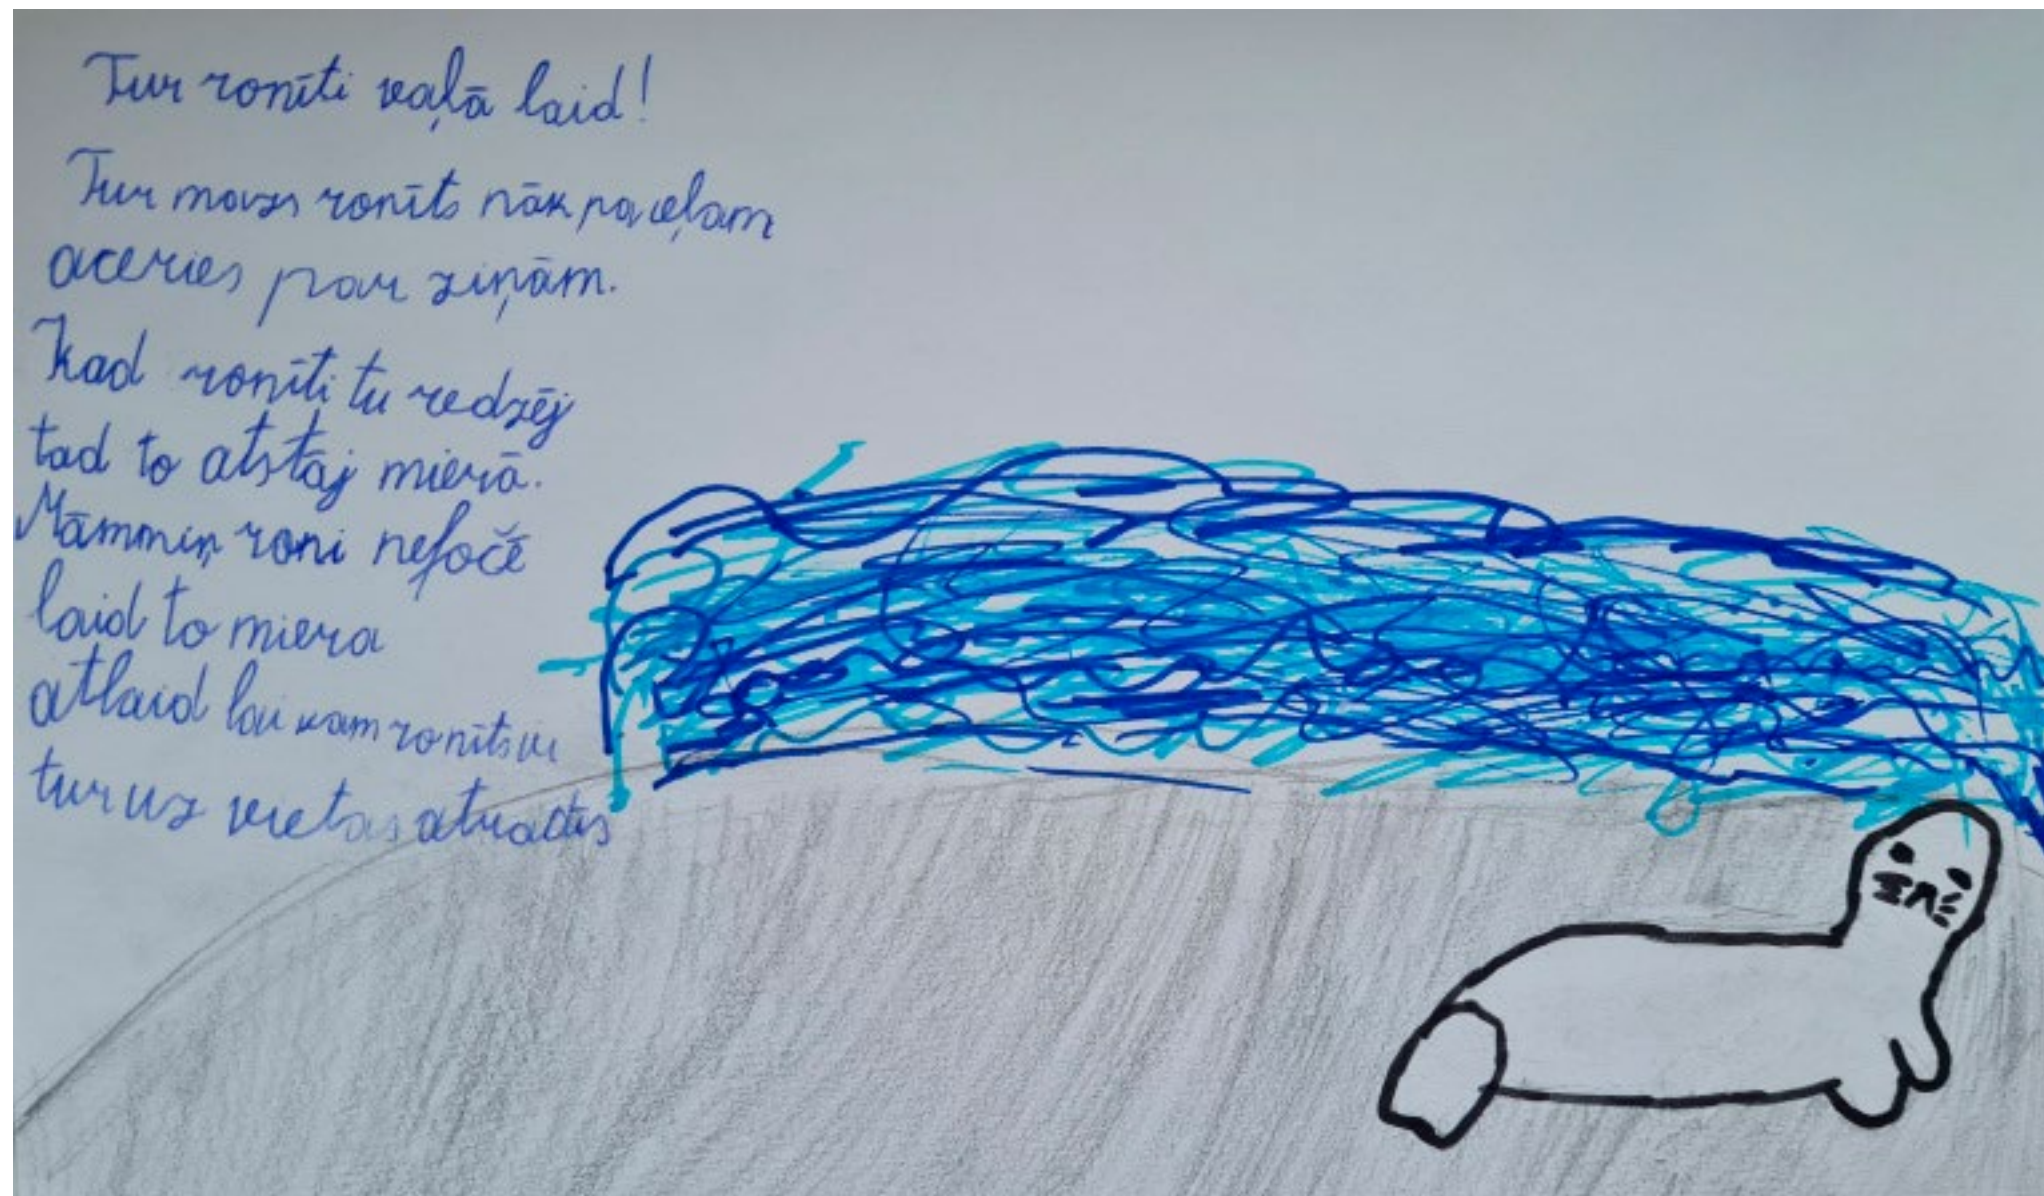 Tur ronīti vaļā laid!
Tur mazs ronīts nāk pa ceļam
aceries par ziņām.
Kad ronīti tu redzēj
tad to atstāj mierā.
Māmmiņ roni nefočē
laid to miera
atlaid lai kam ronīts
tur uz vietas atradīs